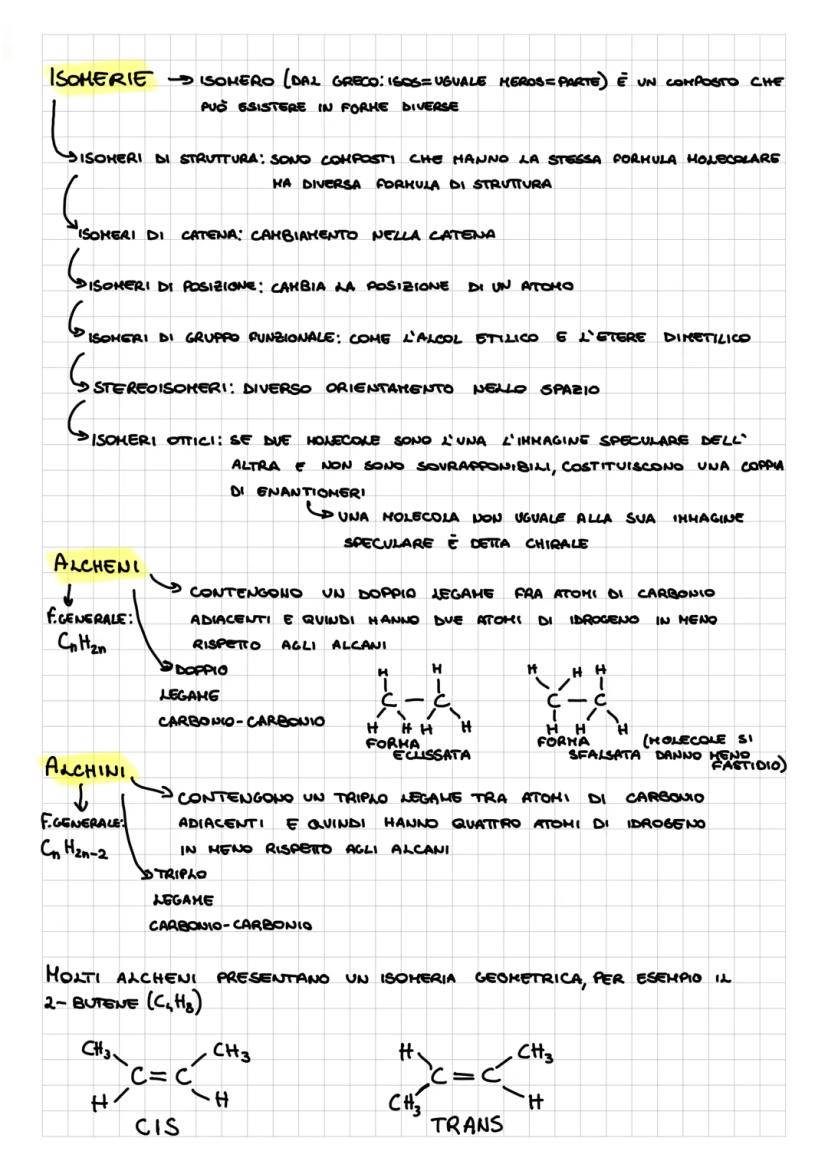 ISOMERIE → ISOMERO (DAL GRECO: ISOS=UGUALE MEROS=PARTE) È UN COMPOSTO CHE
PUÒ ESISTERE IN FORME DIVERSE
ISOMERI DI STRUTTURA: SONO COMPOSTI CHE HANNO LA STESSA FORMULA MOLECOLARE
MA DIVERSA FORMULA DI STRUTTURA
ISOMERI DI CATENA: CAMBIAMENTO NELLA CATENA
ISOMERI DI POSIZIONE: CAMBIA LA POSIZIONE DI UN ATOMO
ISOMERI DI GRUPPO FUNZIONALE: COME L'ALCOL ETILICO E L'ETERE DIMETILICO
STEREOISOMERI: DIVERSO ORIENTAMENTO NELLO SPAZIO
ISOMERI OTTICI: SE DUE MOLECOLE SONO L'UNA L'IMMAGINE SPECULARE DELL'
ALTRA E NON SONO SOVRAPPONIBILI, COSTITUISCONO UNA COPPIA
DI ENANTIOMERI
UNA MOLECOLA NON UGUALE ALLA SUA IMMAGINE
SPECULARE È DETTA CHIRALE
ALCHENI
CONTENGONO UN DOPPIO LEGAME FRA ATOMI DI CARBONIO
F.GENERALE: ADIACENTI E QUINDI HANNO DUE ATOMI DI IDROGENO IN MENO
CnH2n RISPETTO AGLI ALCANI
DOPPIO
LEGAME
CARBONIO-CARBONIO
H H
C – C
H H H H
FORMA
ECLISSATA
H H H
C – C
H H H
FORMA
SFALSATA
(MOLECOLE SI
DANNO MENO
FASTIDIO)
ALCHINI
CONTENGONO UN TRIPLO LEGAME TRA ATOMI DI CARBONIO
F.GENERALE: ADIACENTI E QUINDI HANNO QUATTRO ATOMI DI IDROGENO
CnH2n-2 IN MENO RISPETTO AGLI ALCANI
TRIPLO
LEGAME
CARBONIO-CARBONIO
MOLTI ALCHENI PRESENTANO UN ISOMERIA GEOMETRICA, PER ESEMPIO IL
2-BUTENE (C4H8)
CH3 CH3 H CH3
C=C C=C
H H CH3 H
CIS TRANS